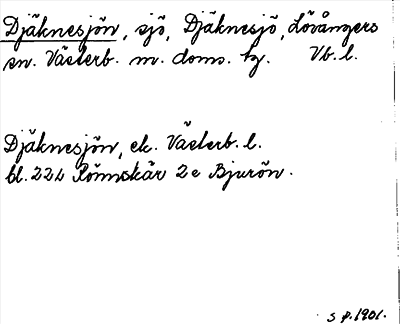 Djäknesjön, sjö, Djäknesjö, Lövångers
sn. Västerb. n. doms. hg. Vb. l.
Djäknesjön, ek. Västerb. l.
bl. 221 Rönnskär 2e Bjurön.
S p. 1901.